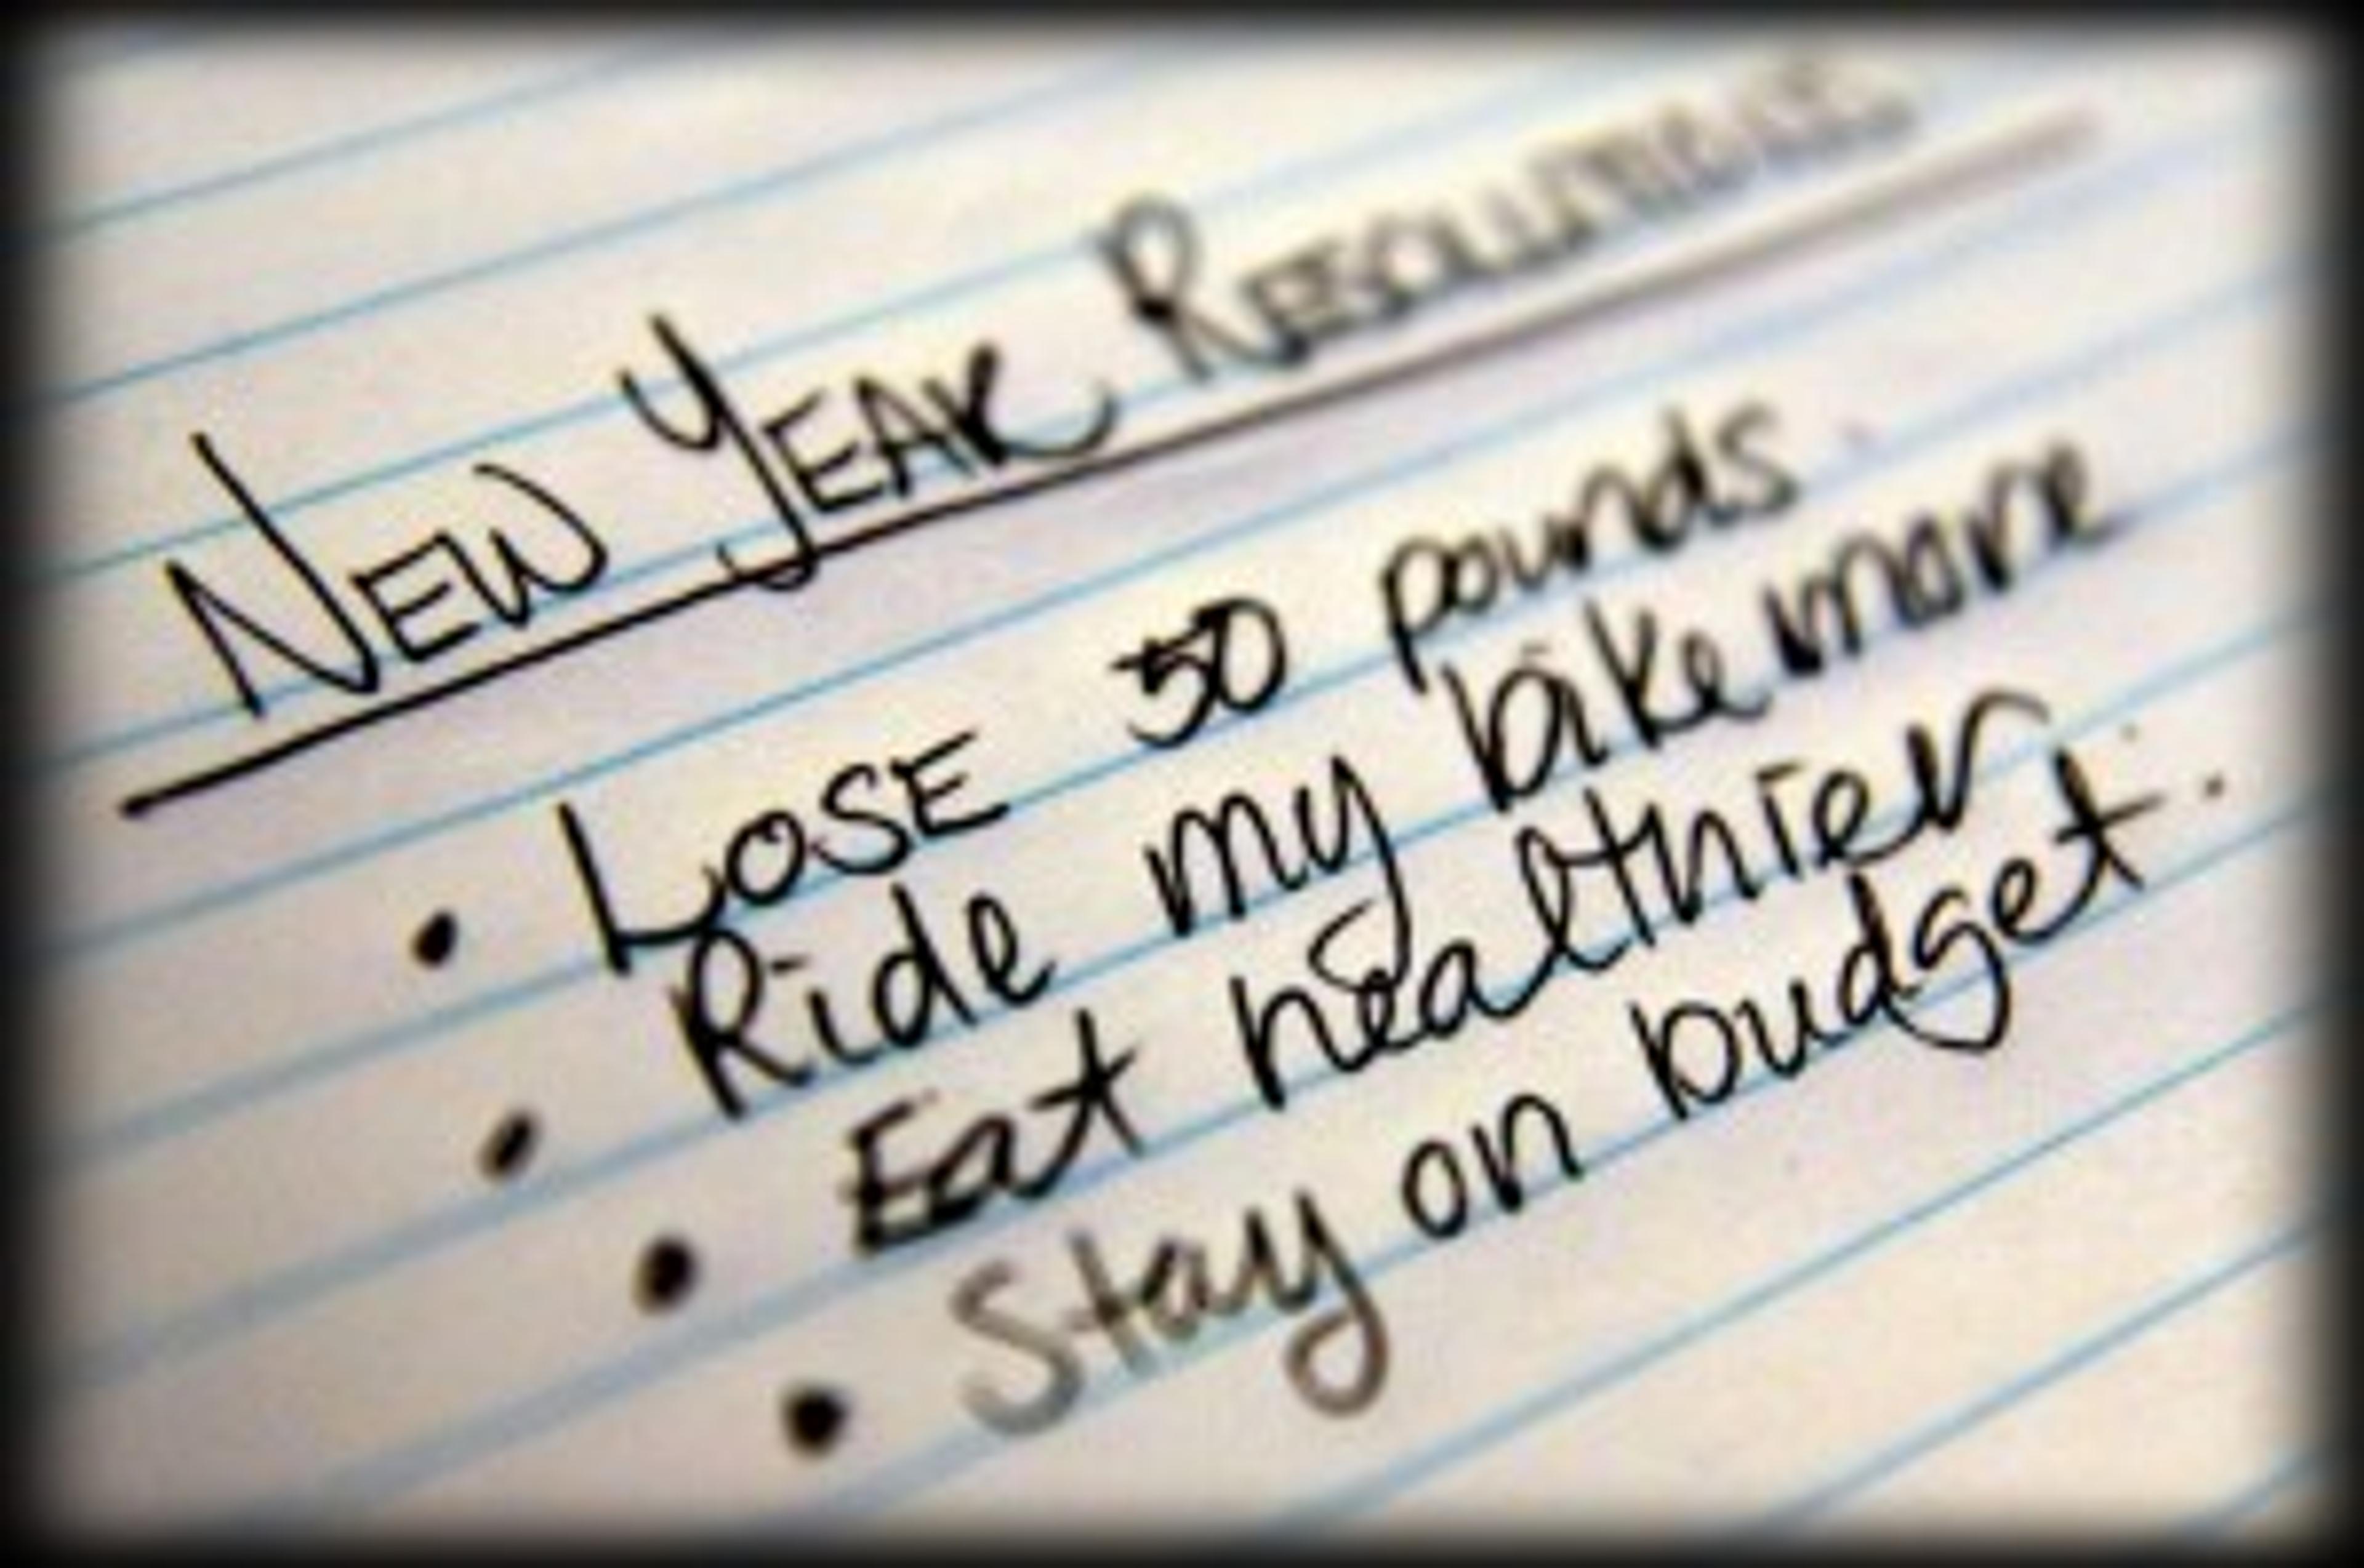 NEW YEAR RESOLUTIONS
• LOSE 50 pounds.
• Ride my bike more
• Eat healthier
• Stay on budget.